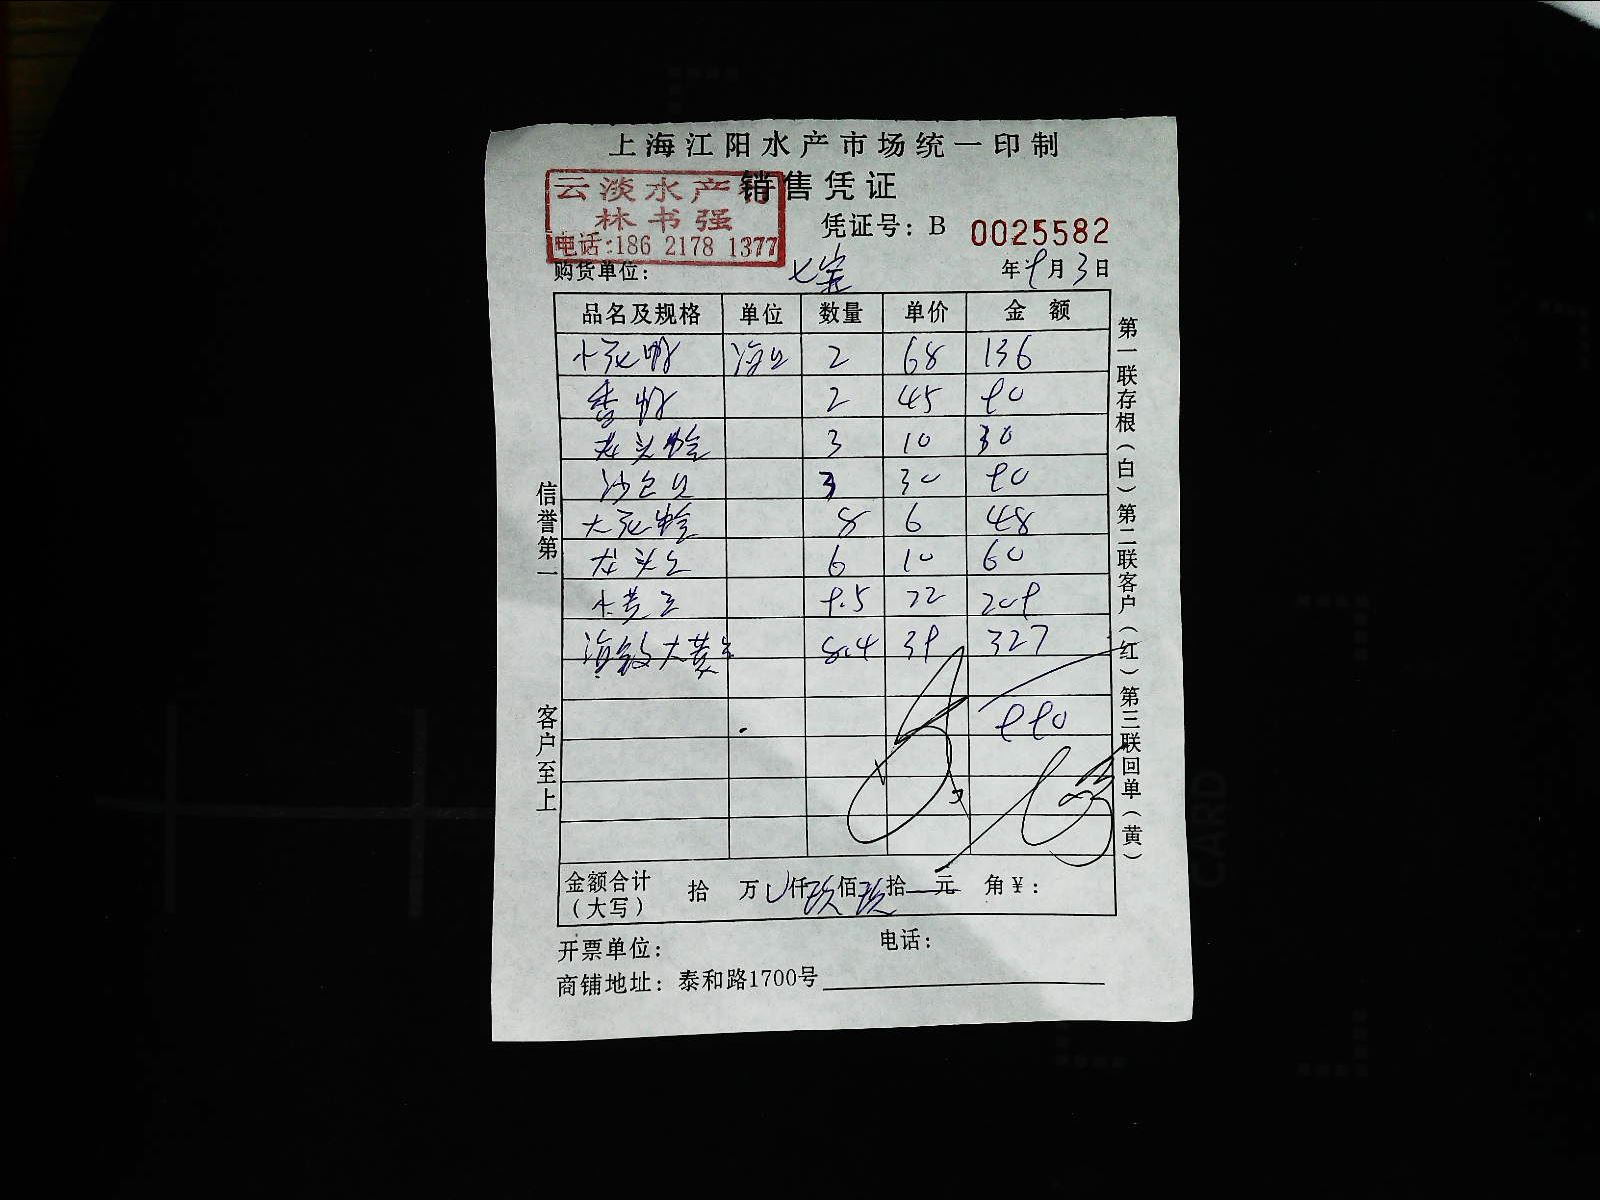 上海江阳水产市场统一印制
销售凭证
云淡水产行
林书强
电话:186 2178 1377
凭证号：B 0025582
购货单位： 七宝 年9月3日
品名及规格 单位 数量 单价 金额
2 68 136
2 45 90
龙头蛤 3 10 30
沙包贝 3 30 90
大花蛤 8 6 48
龙头 6 10 60
小黄 9.5 22 209
海 大黄 8.4 39 327
990
金额合计（大写） 拾 万 仟玖佰玖拾 元 角¥：
开票单位： 电话：
商铺地址：泰和路1700号
信誉第一
客户至上
第一联存根（白）第二联客户（红）第三联回单（黄）
CARD